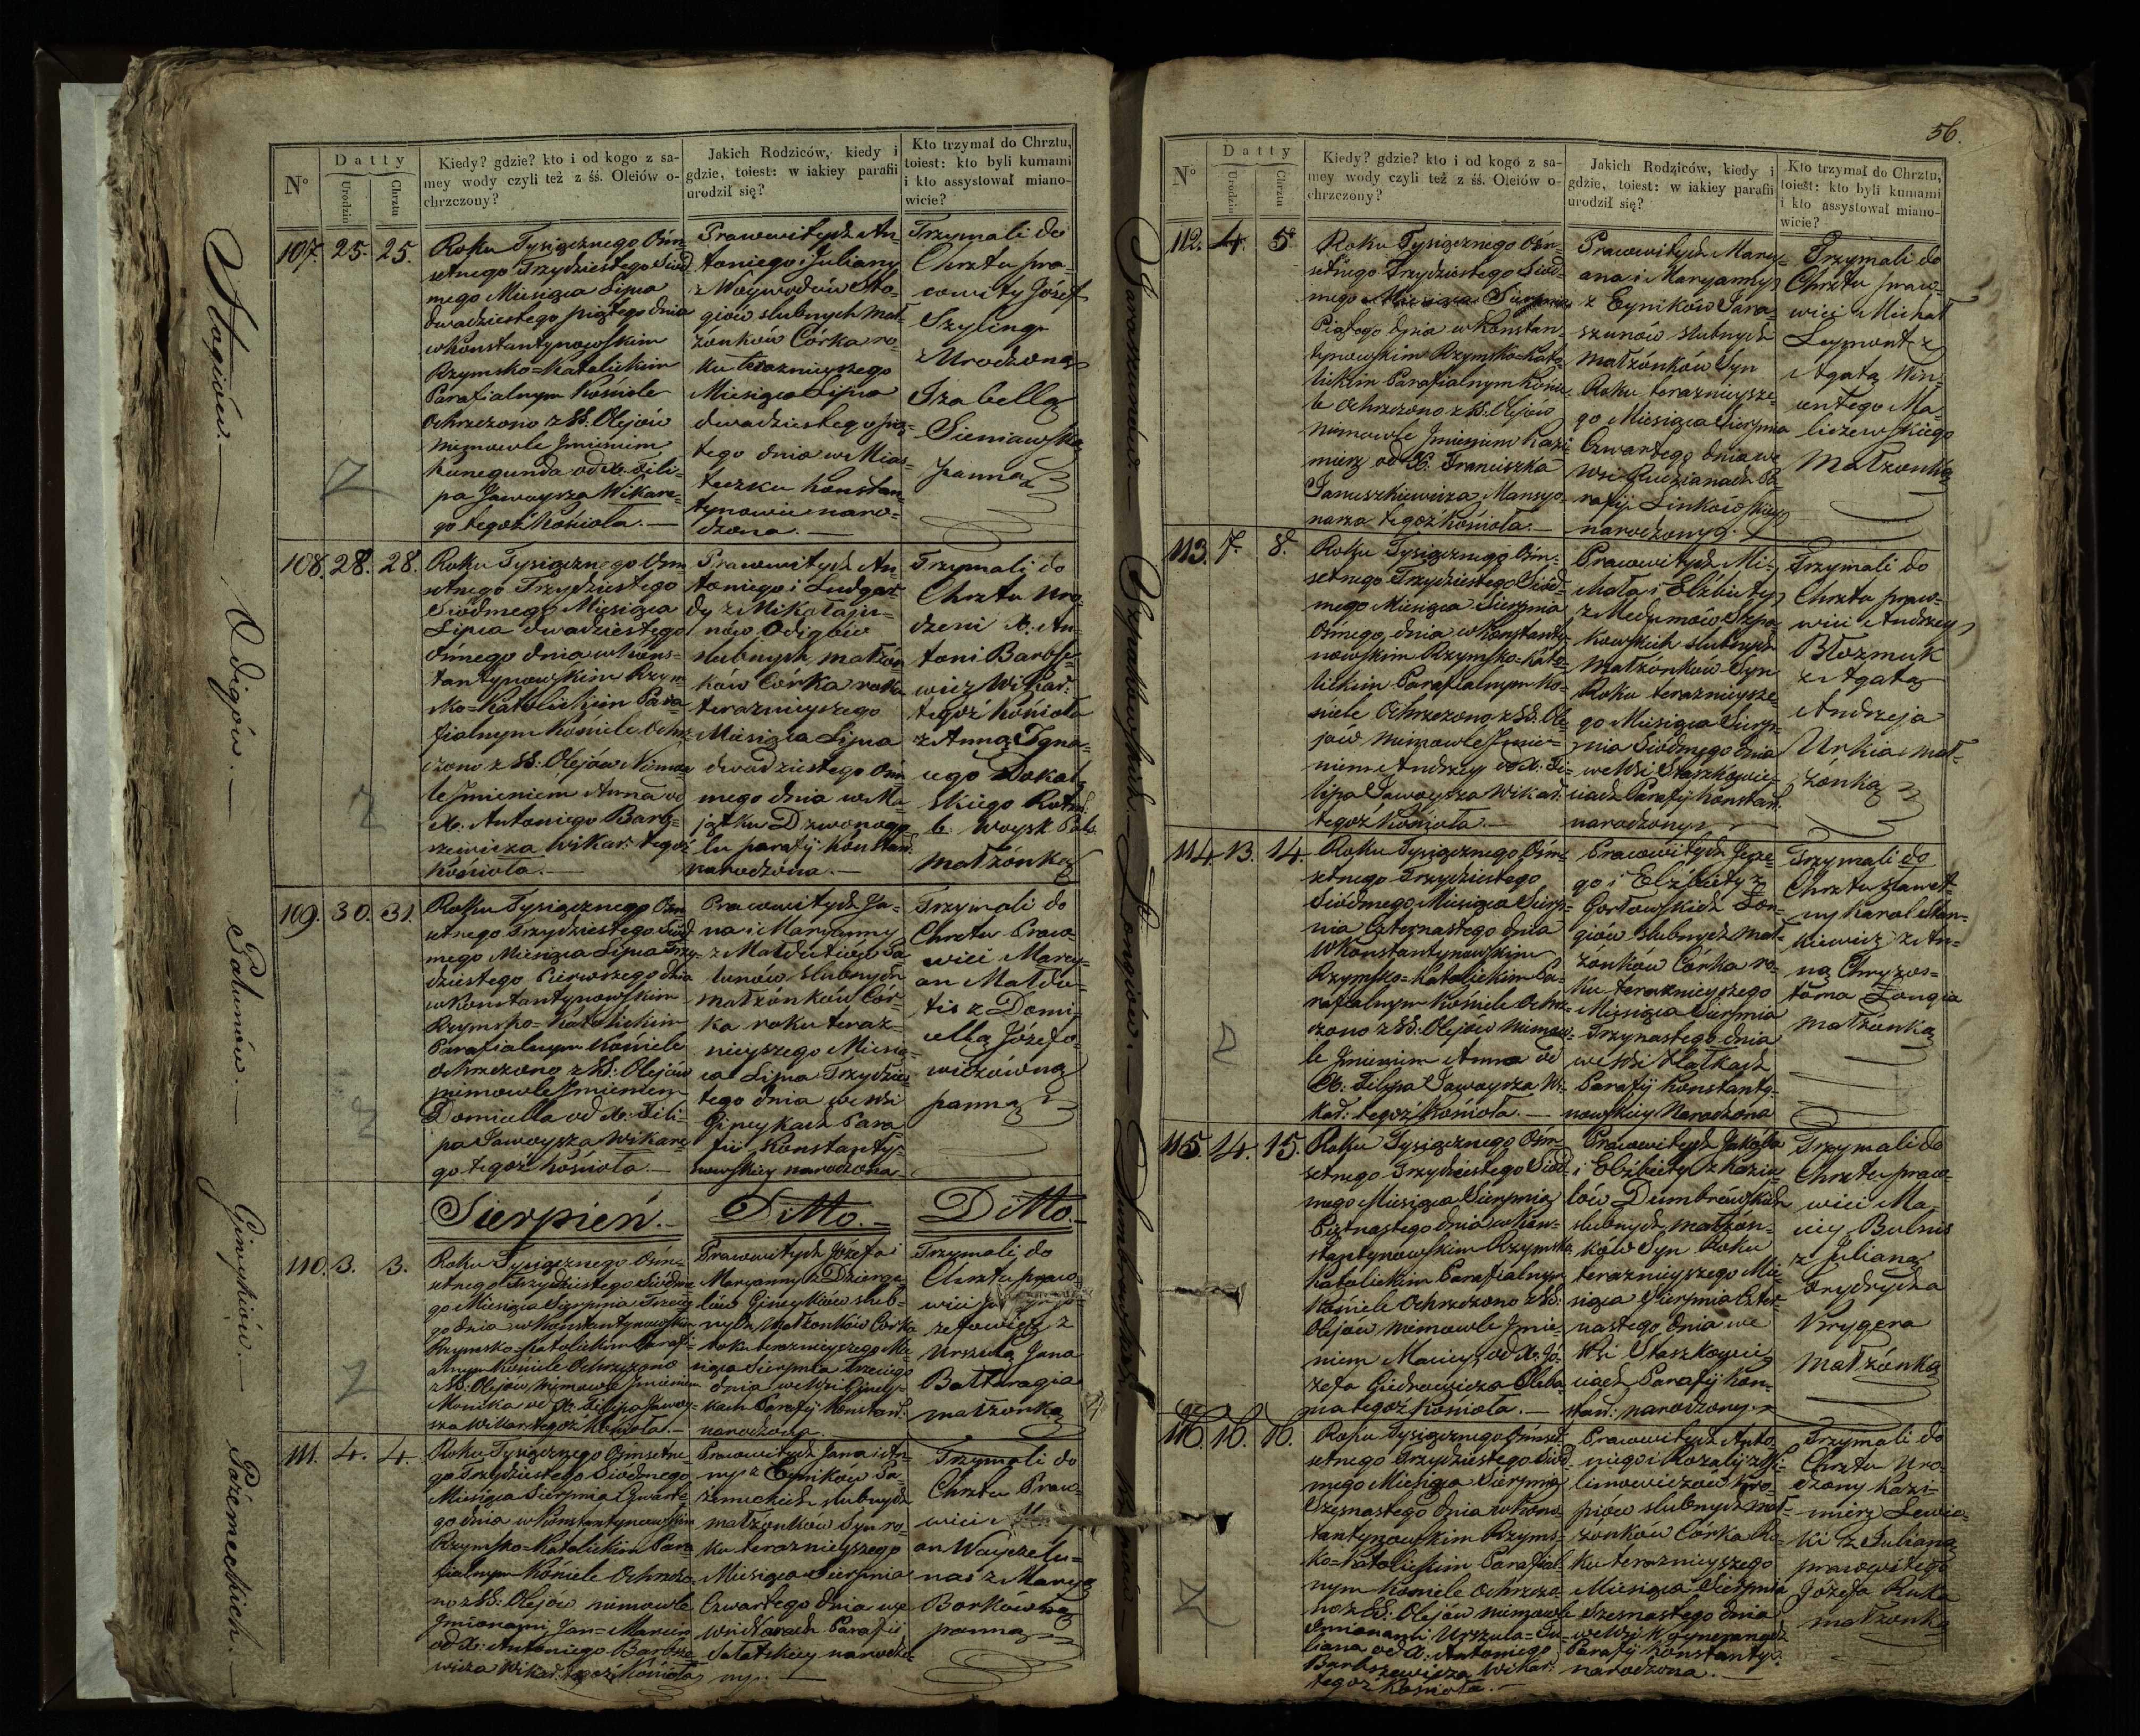 56.
N°
Datty
Urodzin
Chrztu
Kiedy? gdzie? kto i od kogo z sa-
mey wody czyli też z śś. Oleiów o-
chrzczony?
Jakich Rodziców, kiedy i
gdzie, toiest: w iakiey parafii
urodził się?
Kto trzymał do Chrztu,
toiest: kto byli kumami
i kto assystował miano-
wicie?
Stagiów.
107. 25. 25.
Roku Tysiącznego Ośm-
setnego Trzydziestego Siód-
mego Miesiąca Lipca
dwadziestego piątego dnia
w Konstantynowskim
Rzymsko=Katolickim
Parafialnym Kościele
Ochrzczono z SS. Olejów
Niemowle Imieniem
Kunegunda od X. Fili-
pa Jawoysza Wikare-
go tegoż Kościoła.
Prawowitych An-
toniego i Juliany
z Woywodów Sta-
giów slubnych mał-
żonków Córka ro-
ku teraznieyszego
Miesiąca Lipca
dwadziestego pią-
tego dnia w Mias-
teczku Konstan-
tynowie naro-
dzona.
Trzymali do
Chrztu pra-
cowity Józef
Szyling
z Urodzoną
Izabellą
Sieniawską
panną
Odigów.
108. 28. 28.
Roku Tysiącznego Ośm-
setnego Trzydziestego
Siódmego Miesiąca
Lipca dwadziestego
Ośmego dnia w Kons-
tantynowskim Rzym-
sko=Katolickim Para-
fialnym Kościele Ochrz-
czono z SS: Olejów Niemow-
le Imieniem Anna od
X. Antoniego Bart-
szewicza Wikar: tegoż
Kościoła.
Prawowitych An-
toniego i Ludgar-
dy z Mikołaju-
nów Odigów
slubnych małżon-
ków Córka roku
teraznieyszego
Miesiąca Lipca
dwadziestego Ośm-
mego dnia w Ma-
jątku Dzwonogo-
lu parafij Konstan:
narodzona.
Trzymali do
Chrztu Uro-
dzeni X. An-
toni Bartsze-
wicz Wikar:
tegoż Kościoła
z Anną Igna-
cego Sokoł-
skiego Rotm:
b: Woysk Pols:
małżonką
Pałunów.
109. 30. 31.
Roku Tysiącznego Ośm-
setnego Trzydziestego Siód-
mego Miesiąca Lipca Trzy-
dziestego Pierwszego dnia
w Konstantynowskim
Rzymsko=Katolickim
Parafialnym Kościele
Ochrzczono z SS: Olejów
niemowle Imieniem
Domicella od X: Fili-
pa Jawoysza Wikare-
go tegoż Kościoła.
Prawowitych Ja-
na i Maryanny
z Małdutiów Pa-
łunów slubnych
małżonków Cór-
ka roku teraz-
nieyszego Miesią-
ca Lipca Trzydzies-
tego dnia we Wsi
Gineykach Para-
fii Konstanty-
nowskiey narodzona
Trzymali do
Chrztu Prawo-
wici Marcy-
an Małdu-
tis z Domi-
cellą Józefo-
wiczówną
panną
Sierpień. Ditto. Ditto.
Gineyków.
110. 3. 3.
Roku Tysiącznego Ośm-
setnego Trzydziestego Siódme-
go Miesiąca Sierpnia Trzecie-
go dnia w Konstantynowskim
Rzymsko=Katolickim Parafi-
alnym Kościele Ochrzczono
z SS: Olejów Niemowle Imieniem
Monika od X. Filipa Jawoy-
sza Wikar: tegoż Kościoła.
Prawowitych Józefa i
Maryanny z Dzierge-
lów Gineyków slub-
nych Małżonków Córka
roku teraznieyszego Mie-
siąca Sierpnia Trzeciego
dnia we Wsi Giney-
kach Parafij Konstan:
narodzona.
Trzymali do
Chrztu prawo-
wici
zefowicz z
Urszulą Jana
Bałtaragia
małżonką
Pazemeckich.
111. 4. 4.
Roku Tysiącznego Ośmsetne-
go Trzydziestego Siódmego
Miesiąca Sierpnia Czwarte-
go dnia w Konstantynowskim
Rzymsko=Katolickim Para-
fialnym Kościele Ochrzczo-
no z SS: Olejów niemowle
Imionami Jan=Marcin
od X: Antoniego Bartsze-
wicza Wikar: tegoż Kościoła
Prawowitych Jana i An-
ny z Cyników Pa-
zemeckich slubnych
małżonków Syn ro-
ku teraznieyszego
Miesiąca Sierpnia
Czwartego dnia we
Parafii
narodzo-
ny.
Trzymali do
Chrztu Prawo-
wici
an Wayszelu-
nas z Maryą
Borkowną
panną
Paraszunów.
112. 4. 5.
Roku Tysiącznego Ośm-
setnego Trzydziestego Siód-
mego Miesiąca Sierpnia
Piątego dnia w Konstan-
tynowskim Rzymsko=Kato-
lickim Parafialnym Koście-
le Ochrzczono z SS. Olejów
Niemowle Imieniem Kazi-
mierz od X: Franciszka
Januszkiewicza Mansyo-
narza tegoż Kościoła.
Prawowitych Marcy-
ana i Maryanny
z Cyników Para-
szunów slubnych
małżonków Syn
Roku teraznieysze-
go Miesiąca Sierpnia
Czwartego dnia we
Wsi Rudzianach Pa-
rafij Linkowskiey
narodzony.
Trzymali do
Chrztu prawo-
wici Michał
Leymont z
Agatą Win-
centego Ma-
liszewskiego
Małżonką
Szpakowskich.
113. 7. 8.
Roku Tysiącznego Ośm-
setnego Trzydziestego Siód-
mego Miesiąca Sierpnia
Ośmego dnia w Konstanty-
nowskim Rzymsko=Kato-
lickim Parafialnym Ko-
ściele Ochrzczono z SS. Ole-
jów niemowle Imie-
niem Andrzey od X. Fi-
lipa Jawoysza Wikar:
tegoż Kościoła.
Prawowitych Mi-
chała i Elżbiety
z Medumów Szpa-
kowskich slubnych
Małżonków Syn
Roku teraznieysze-
go Miesiąca Sierp-
nia Siódmego dnia
we Wsi Staszkowie-
ciach Parafij Konstan:
narodzony
Trzymali do
Chrztu prawo-
wici Andrzey
Błozmuk
z Agatą
Andrzeja
Urkia mał-
żonką
Longiów.
114. 13. 14.
Roku Tysiącznego Ośm-
setnego Trzydziestego
Siódmego Miesiąca Sierp-
nia Czternastego dnia
w Konstantynowskim
Rzymsko=Katolickim Pa-
rafialnym Kościele Ochrz-
czono z SS: Olejów Niemow-
le Imieniem Anna od
X: Filipa Jawoysza Wi-
kar: tegoż Kościoła.
Prawowitych Jerze-
go i Elżbiety z
Gorłowskich Lon-
giów slubnych mał-
żonków Córka ro-
ku teraznieyszego
Miesiąca Sierpnia
Trzynastego dnia
we Wsi
Parafij Konstanty-
nowskiey Narodzona
Trzymali do
Chrztu Sławet-
ny Karol Stan-
kiewicz z An-
ną Chryzos-
toma Longia
małżonką
Dumbrowskich.
115. 14. 15.
Roku Tysiącznego Ośm-
setnego Trzydziestego Siód-
mego Miesiąca Sierpnia
Piętnastego dnia w Kon-
stantynowskim Rzymsko
Katolickim Parafialnym
Kościele Ochrzczono z SS:
Olejów niemowle Imie-
niem Maciey od X. Jó-
zefa Giedrowicza Pleba-
na tegoż Kościoła.
Prawowitych Jakóba
i Elżbiety z Kazia-
lów Dumbrowskich
slubnych małżon-
ków Syn Roku
teraznieyszego Mie-
siąca Sierpnia Czter-
nastego dnia we
Wsi Staszkowie-
ciach Parafij Kon-
stan: narodzony
Trzymali do
Chrztu prawo-
wici Ma-
ciey Bulnis
z Julianą
Frydrycha
Krygera
małżonką
116. 16. 16.
Roku Tysiącznego Ośm-
setnego Trzydziestego Siód-
mego Miesiąca Sierpnia
Szesnastego dnia w Kons-
tantynowskim Rzyms-
ko=Katolickim Parafial-
nym Kościele Ochrzczo-
no z SS: Olejów niemowle
Imionami Urszula=Ju-
liana od X. Antoniego
Bartszewicza Wikar:
tegoż Kościoła.
Prawowitych Anto-
niego i Rozalij z Kli-
mowiczów
slubnych mał-
żonków Córka Ro-
ku teraznieyszego
Miesiąca Sierpnia
Szesnastego dnia
we Wsi
Parafij Konstanty:
narodzona.
Trzymali do
Chrztu Uro-
dzony Kazi-
mierz Lewic-
ki z Julianą
prawowitego
Józefa Ruka
małżonką